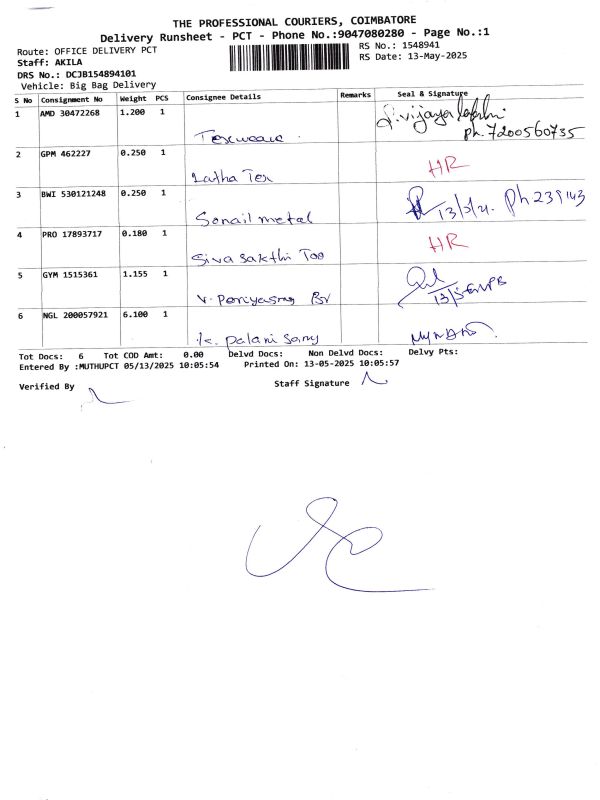 THE PROFESSIONAL COURIERS, COIMBATORE
Delivery Runsheet - PCT - Phone No.:9047080280 - Page No.:1
Route: OFFICE DELIVERY PCT
RS No.: 1548941
Staff: AKILA
RS Date: 13-May-2025
DRS No.: DCJB154894101
Vehicle: Big Bag Delivery
S No Consignment No Weight PCS Consignee Details Remarks Seal & Signature
1 AMD 30472268 1.200 1 S.vijaya
Texweave. ph.7200560735
2 GPM 462227 0.250 1
Latha Tex HR
3 BWI 530121248 0.250 1
Sonail metal Ph 239143
4 PRO 17893717 0.180 1 HR
Siva Sakthi
5 GYM 1515361 1.155 1
V. Periyasmy
6 NGL 200057921 6.100 1
K. Palani Samy
Tot Docs: 6 Tot COD Amt: 0.00 Delvd Docs: Non Delvd Docs: Delvy Pts:
Entered By :MUTHUPCT 05/13/2025 10:05:54 Printed On: 13-05-2025 10:05:57
Verified By Staff Signature